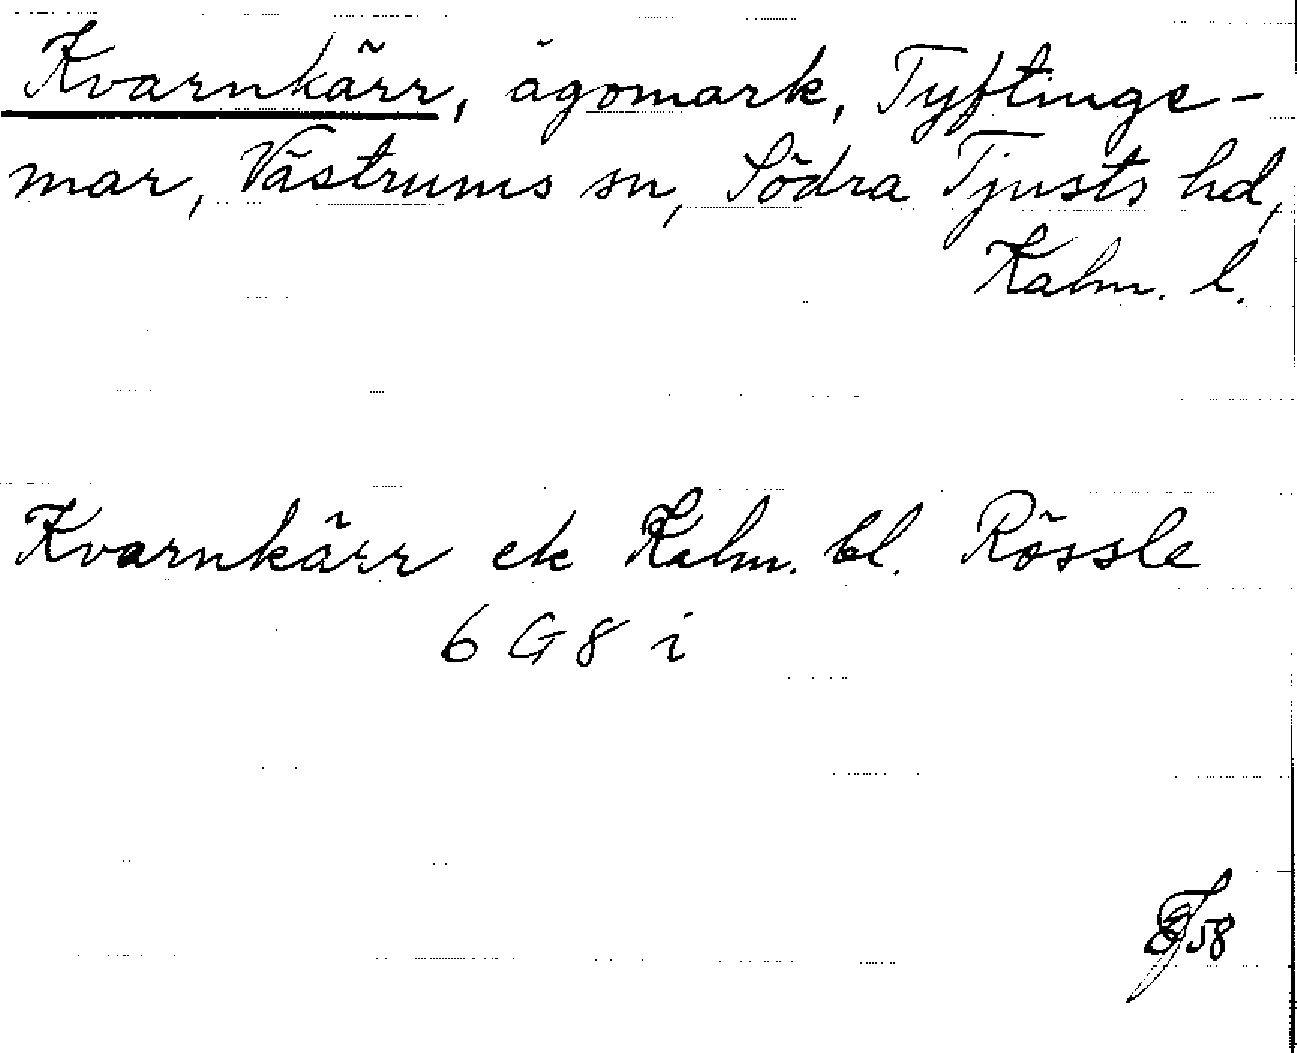 Kvarnkärr, ägomark, Tyftinge-
mar, Västrums sn, Södra Tjusts hd,
Kalm. l.
Kvarnkärr ek Kalm. bl. Rössle
6 G 8 i
58